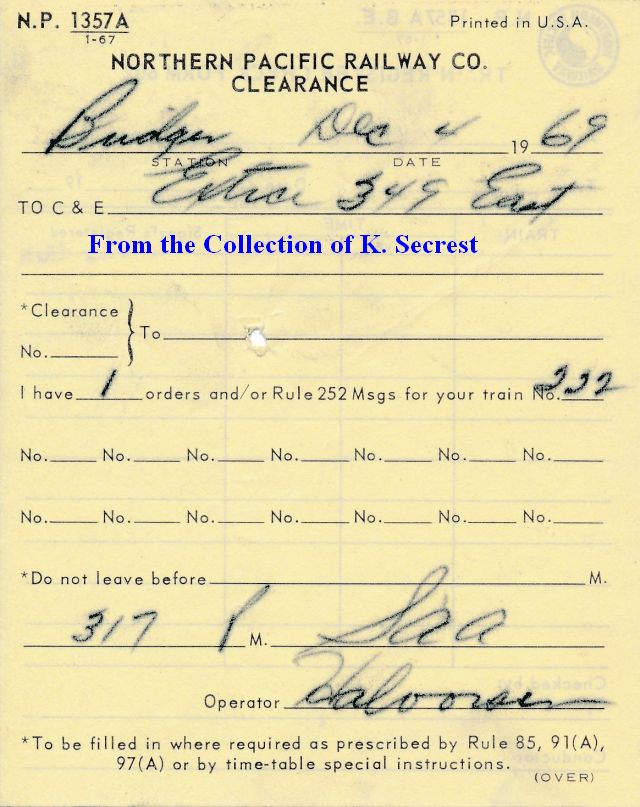 N.P. 1357A Printed in U.S.A.
1-67
NORTHERN PACIFIC RAILWAY CO.
CLEARANCE
Dec 4 1969
STATION DATE
TO C & E Extra 349 East
From the Collection of K. Secrest
*Clearance
No. To
I have 1 orders and/or Rule 252 Msgs for your train No. 222
No. No. No. No. No. No. No.
No. No. No. No. No. No. No.
*Do not leave before M.
317 P M.
Operator Halvorsen
*To be filled in where required as prescribed by Rule 85, 91(A),
97(A) or by time-table special instructions.
(OVER)